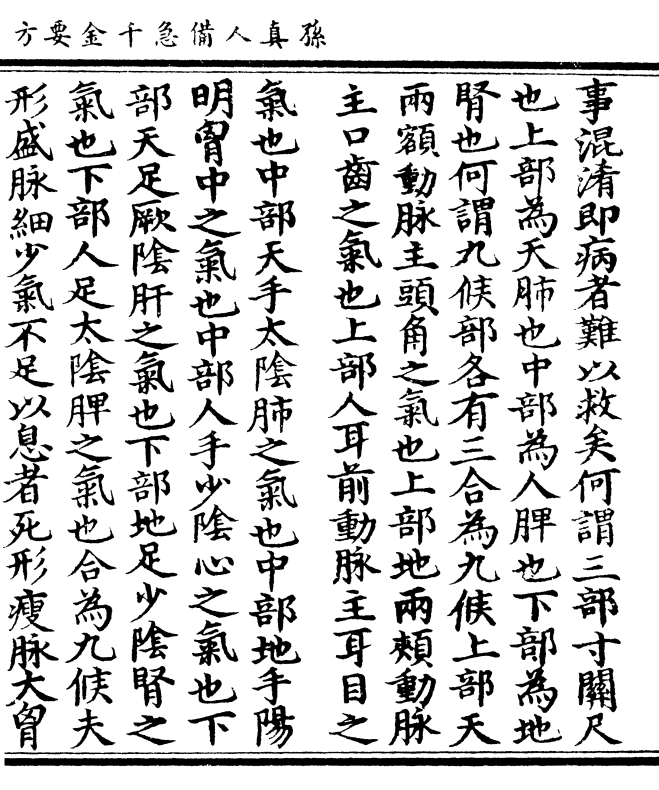 孫真人備急千金要方
事混淆即病者難以救矣何謂三部寸關尺
也上部為天肺也中部為人脾也下部為地
腎也何謂九候部各有三合為九候上部天
兩額動脉主頭角之氣也上部地兩頰動脉
主口齒之氣也上部人耳前動脉主耳目之
氣也中部天手太陰肺之氣也中部地手陽
明胷中之氣也中部人手少陰心之氣也下
部天足厥陰肝之氣也下部地足少陰腎之
氣也下部人足太陰脾之氣也合為九候夫
形盛脉細少氣不足以息者死形瘦脉大胷